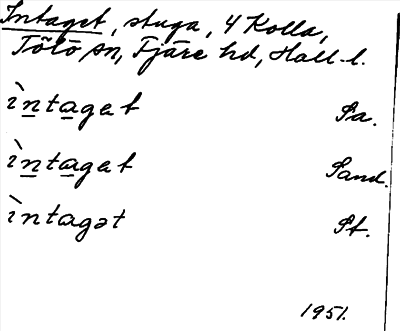 Intaget, stuga, 4 Kolla,
Tölö sn, Fjäre hd, Hall. l.
ìntaget Sa.
ìntaget Sand.
ìntagət St.
1951.